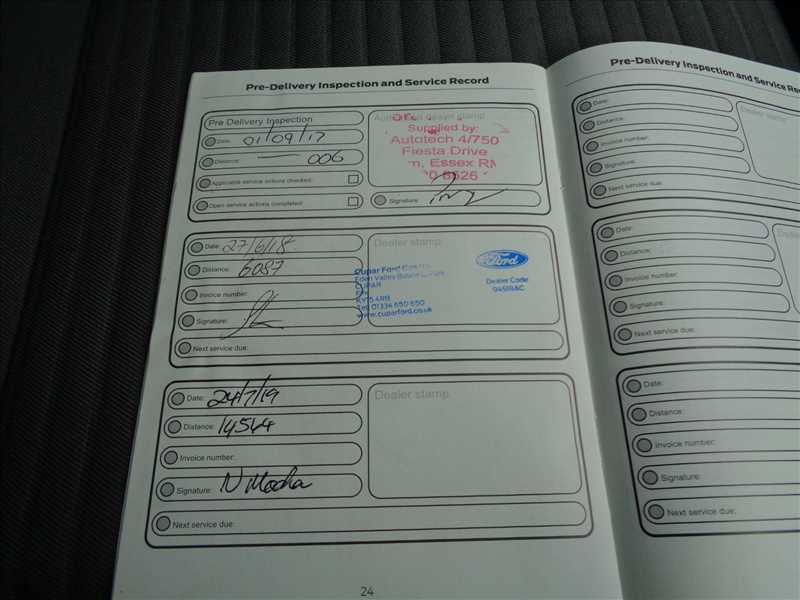 Pre-Delivery Inspection and Service Record
Pre Delivery Inspection
Date: 01/09/17
Distance: 006
Applicable service actions checked:
Open service actions completed:
dealer stamp
Supplied by:
Autotech 4/750
Fiesta Drive
Essex RM
Signature:
Date: 27/6/18
Distance: 6087
Invoice number:
Signature:
Next service due:
Dealer stamp
Cupar Ford
Eden Valley
CUPAR
KY15 4RB
Tel: 01334 650 650
www.cuparford.co.uk
Ford
Dealer Code:
Date: 24/7/19
Distance: 14544
Invoice number:
Signature: N Mocha
Next service due:
Dealer stamp
24
Pre-Delivery Inspection and Service Re
Date:
Distance:
Invoice number:
Signature:
Next service due:
Dealer
Date:
Distance:
Invoice number:
Signature:
Next service due:
Dealer
Date:
Distance:
Invoice number:
Signature:
Next service due: